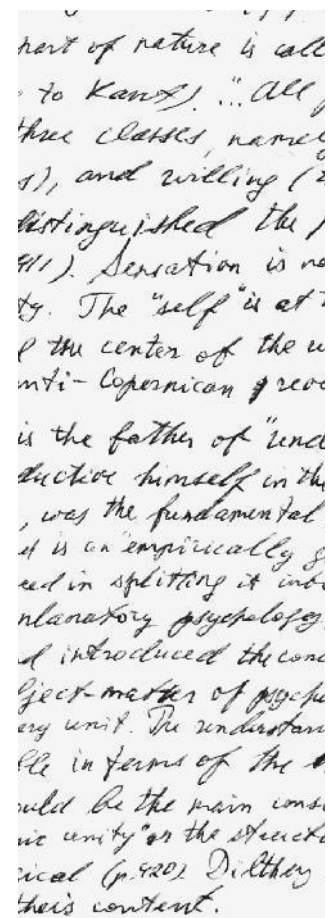 part of nature is call
to Kant). "... All
three classes, namely
s), and willing (
distinguished the
911). Sensation is no
ty. The "self" is at
the center of the u
nti-Copernican revo
is the father of "und
ductive himself in the
, was the fundamental
it is an empirically g
eed in splitting it into
planatory psychology
d introduced the conc
bject-matter of psycho
ary unit. The understan
ble in terms of the
ould be the main cons
mic unity" or the structu
ical (p. 920). Dilthey
their content.